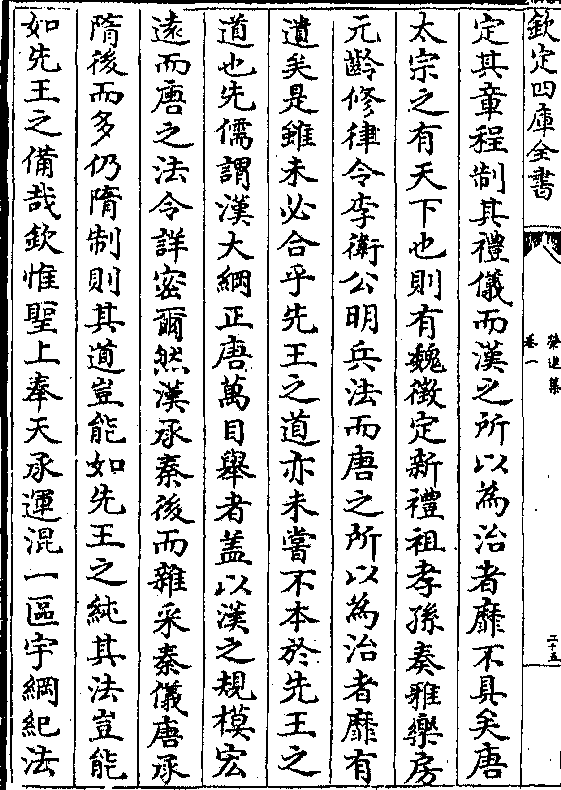 欽定四庫全書
登進集
卷一
二十五
定其章程制其禮儀而漢之所以為治者靡不具矣唐
太宗之有天下也則有魏徵定新禮祖孝孫奏雅樂房
元齡修律令李衛公明兵法而唐之所以為治者靡有
遺矣是雖未必合乎先王之道亦未嘗不本於先王之
道也先儒謂漢大綱正唐萬目舉者蓋以漢之規模宏
遠而唐之法令詳密爾然漢承秦後而雜采秦儀唐承
隋後而多仍隋制則其道豈能如先王之純其法豈能
如先王之備哉欽惟聖上奉天承運混一區宇綱紀法